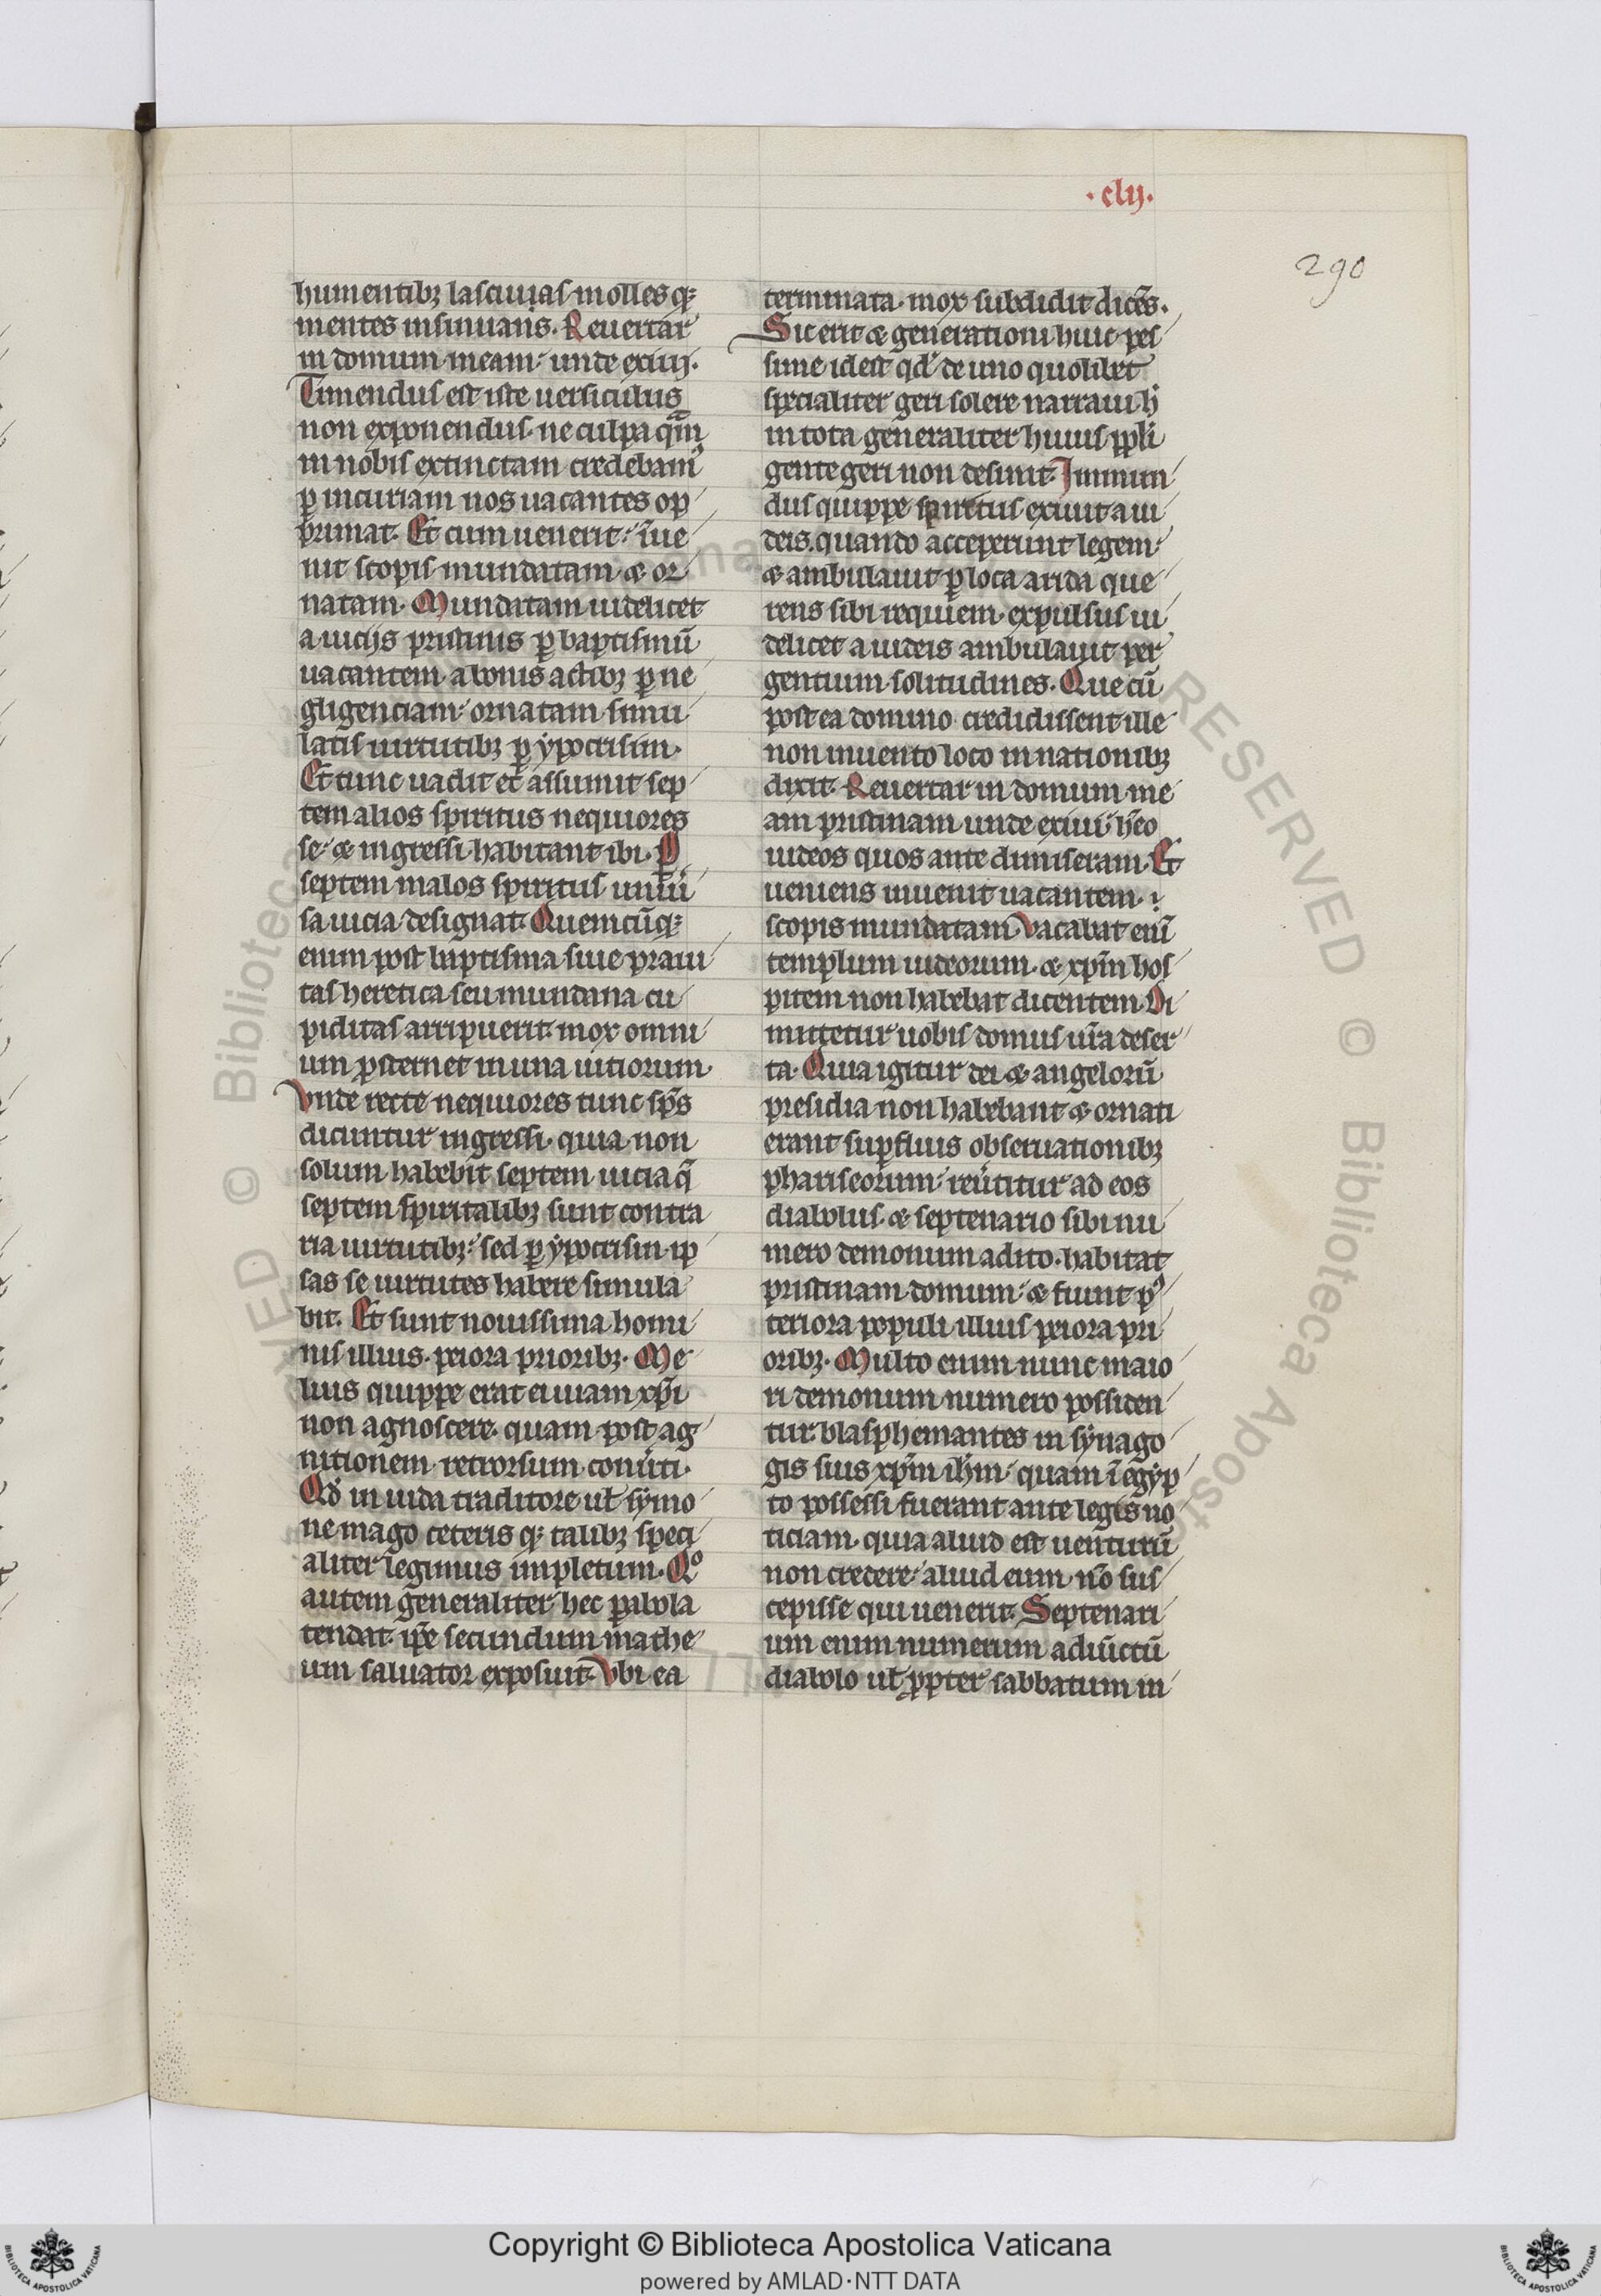 ·clij·
290
humentibꝫ lasciuias molles qꝫ
mentes insinuans. Reuertar
in domum meam unde exiui.
Timendus est iste uersiculus
non exponendus. ne culpa qm̄
in nobis extinctam credebamꝰ
ꝑ incuriam nos uacantes op
primat. Et cum uenerit. īue
nit scopis mundatam ⁊ or
natam. Mundatam uidelicet
a uicijs pristinis ꝑ baptismū
uacantem a bonis actibꝫ ꝑ ne
gligenciam ornatam simu
latis uirtutibꝫ ꝑ ypocrisim.
Et tunc uadit et assumit sep
tem alios spiritus nequiores
se. ⁊ ingressi habitant ibi. ꝑ
septem malos spiritus uniū
sa uicia designat. Quemcūqꝫ
enim post baptisma siue praui
tas heretica seu mundana cu
piditas arripuerit. mox omni
um ꝓsternet in una uitiorum.
Vnde recte nequiores tunc sp̄s
dicuntur ingressi. quia non
solum habebit septem uicia q̄
septem spiritalibꝫ sunt contra
ria uirtutibꝫ. sed ꝑ ypocrisin ip
sas se uirtutes habere simula
bit. Et sunt nouissima homi
nis illius. peiora prioribꝫ. Me
lius quippe erat ei uiam xp̄i
non agnoscere. quam post ag
nitionem retrorsum conūti.
Qd̓ in iuda traditore uł symo
ne mago ceteris qꝫ talibꝫ speci
aliter legimus impletum. Qº
autem generaliter hec ꝑabola
tendat. ip̄e secundum mathe
um saluator exposuit. Vbi ea
terminata. mox subdidit dicēs.
Sic erit ⁊ generationi huic pes
sime id est qd̓ de uno quolibet
specialiter geri solere narraui h̓
in tota generaliter huius ppl̓i
gente geri non desinit. Inmun
dus quippe spiritus exiuit a iu
deis. quando acceperunt legem
⁊ ambulauit ꝑ loca arida que
rens sibi requiem. expulsus ui
delicet a iudeis ambulauit per
gentium solitudines. Que cū
postea domino credidissent ille
non inuento loco in nationibꝫ
dixit. Reuertar in domum me
am pristinam unde exiui h̄eo
iudeos quos ante dimiseram. Et
ueniens inuenit uacantem.
scopis mundatam Vacabat enī
templum iudeorum. ⁊ xp̄m hos
pitem non habebat dicentem. Di
mittetur uobis domus ur̄a deser
ta. Quia igitur dei ⁊ angelorū
presidia non habebant ⁊ ornati
erant suꝑfluis obseruationibꝫ
phariseorum. reūtitur ad eos
diabolus. ⁊ septenario sibi nu
mero demonum adito. habitat
pristinam domum. ⁊ fiunt pꝰ
teriora populi illius peiora pri
oribꝫ. Multo enim nunc maio
ri demonum numero possiden
tur blasphemantes in synago
gis suis xp̄m ih̄m. quam ī egyp
to possessi fuerant ante legis no
ticiam. quia aliud est uenturū
non credere. aliud eum nō sus
cepisse qui uenerit. Septenari
um enim numerum adiūctū
diabolo uł ꝓpter sabbatum in
Copyright © Biblioteca Apostolica Vaticana
powered by AMLAD·NTT DATA